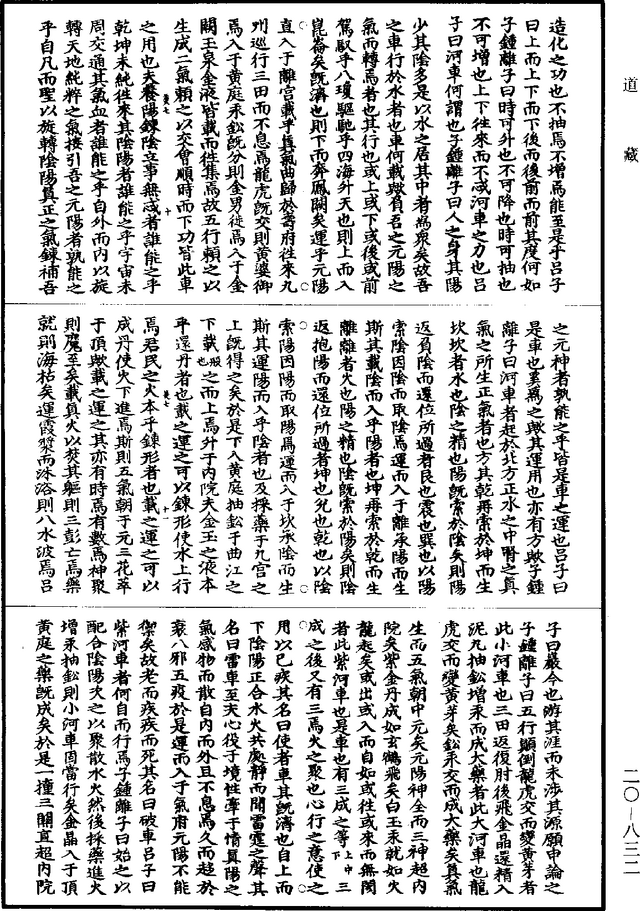 道藏
造化之功也不抽焉不增焉能至是乎呂子
曰上而上下而下後而後前而前其度何如
子鍾離子曰時可外也不可降也時可抽也
不可增也上下往來而不忒河車之力也呂
子曰河車何謂也子鍾離子曰人之身其陽
少其陰多是以水之居其中者為衆矣故吾
之車行於水者也車何載歟負吾之元陽之
氣而轉焉者也其行也或上或下或後或前
駕馭乎八瓊驅馳乎四海外天也則上而入
崑崙矣既濟也則下而奔鳳闕矣運乎元陽
直入于離宫載乎真氣曲歸於壽府往來九
州巡行三田而不息焉龍虎既交則黄婆御
焉入于黄庭汞鈆既分則金男徙焉入于金
闕玉泉金液皆載而徃集焉故五行賴之以
生成二氣賴之以交會順時而下功皆此車
之用也夫養陽鍊陰立事無忒者誰能之乎
乾坤未純徃來其陰陽者誰能之乎宇宙未
周交通其氣血者誰能之乎自外而内以旋
轉天地純粹之氣接引吾之元陽者孰能之
乎自凡而聖以旋轉陰陽真正之氣鍊補吾
之元神者孰能之乎皆是車之運也呂子曰
是車也奚爲之歟其運用也亦有方歟子鍾
離子曰河車者起於北方正水之中腎之真
氣之所生正氣者也方其乾再索於坤而生
坎坎者水也陰之精也陽既索於陰矣則陽
返負陰而還位所過者艮也震也巽也以陽
索陰因陰而取陰焉運而入于離承陽而生
斯其載陰而入乎陽者也坤再索於乾而生
離離者火也陽之精也陰既索於陽矣則陰
返抱陽而還位所過者坤也兊也乾也以陰
索陽因陽而取陽焉運而入于坎承陰而生
斯其運陽而入乎陰者也及採藥于九宫之
上既得之矣於是下入黄庭抽鈆于曲江之
下載之而上焉升于内院夫金玉之液本
乎還丹者也載之運之可以鍊形使水上行
焉君民之火本乎鍊形者也載之運之可以
成丹使火下進焉斯則五氣朝于元三花萃
于頂歟載之運之其亦有時焉有數焉神聚
則魔至矣載真火以焚其軀則三彭亡焉藥
就則海枯矣運霞漿而沐浴則八水波焉呂
子曰嚴今也游其涯而未涉其源願申論之
子鍾離子曰五行顛倒龍虎交而變黄芽者
此小河車也三田返復肘後飛金晶還精入
泥丸抽鈆增汞而成大藥者此大河車也龍
虎交而變黄芽矣鈆汞交而成大藥矣真氣
生而五氣朝中元矣元陽神全而三神超内
院矣紫金丹成如玄鶴飛矣白玉汞就如火
龍起矣或出或入而自如或徃或來而無閡
者此紫河車也是車也有三成之等上中下三
成之後又有三焉火之聚也心行之意使之
用以已疾其名曰使者車其既濟也自上而
下陰陽正合水火共處靜而聞雷霆之聲其
名曰雷車至夫心役于境性牽于情真陽之
氣感物而散自内而外且不息焉久而超於
衰八邪五疫於是運而入于氣甫元陽不能
禦矣故老而疾疾而死其名曰破車呂子曰
紫河車者何自而行焉子鍾離子曰始之以
配合陰陽次之以聚散水火然後採藥進火
增汞抽鈆則小河車固當行矣金晶入于頂
黄庭之藥既成矣於是一撞三關直超内院
二〇-八三二